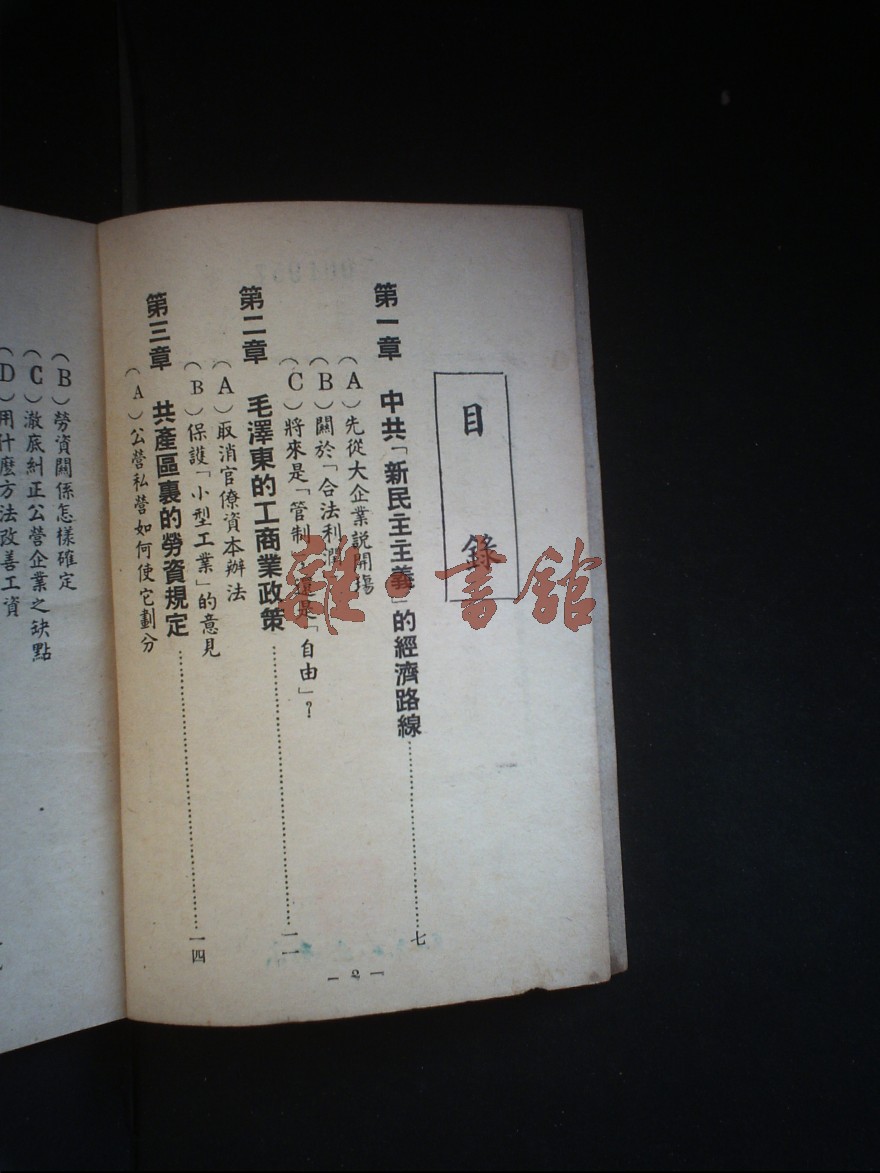 目錄
第一章 中共「新民主主義」的經濟路線⋯⋯⋯⋯七
(A)先從大企業説開塲
(B)關於「合法利潤」
(C)將來是「管制」還是「自由」?
第二章 毛澤東的工商業政策⋯⋯⋯⋯一一
(A)取消官僚資本辦法
(B)保護「小型工業」的意見
第三章 共產區裏的勞資規定⋯⋯⋯⋯一四
(A)公營私營如何使它劃分
— 2 —
(B)勞資關係怎樣確定
(C)澈底糾正公營企業之缺點
(D)用什麼方法改善工資
雜·書館